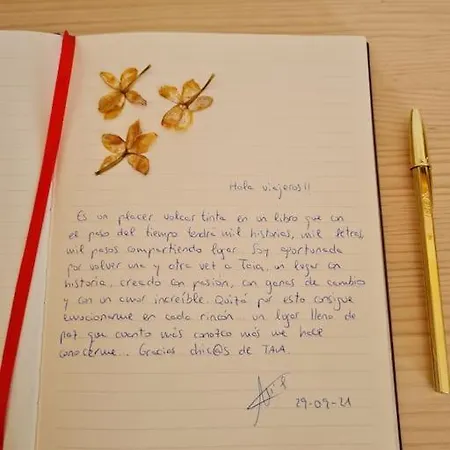 Hola viajeros!!
Es un placer volcar tinta en un libro que con
el paso del tiempo tendrá mil historias, mil letras,
mil pasos compartiendo lugar. Soy afortunada
por volver una y otra vez a Taia, un lugar con
historia, creado con pasión, con ganas de cambio
y con un amor increíble. Quizá por esto consigue
emocionarme en cada rincón... un lugar lleno de
paz que cuanto más conozco más me hace
conocerme... Gracias chic@s de TAIA.
29-09-21